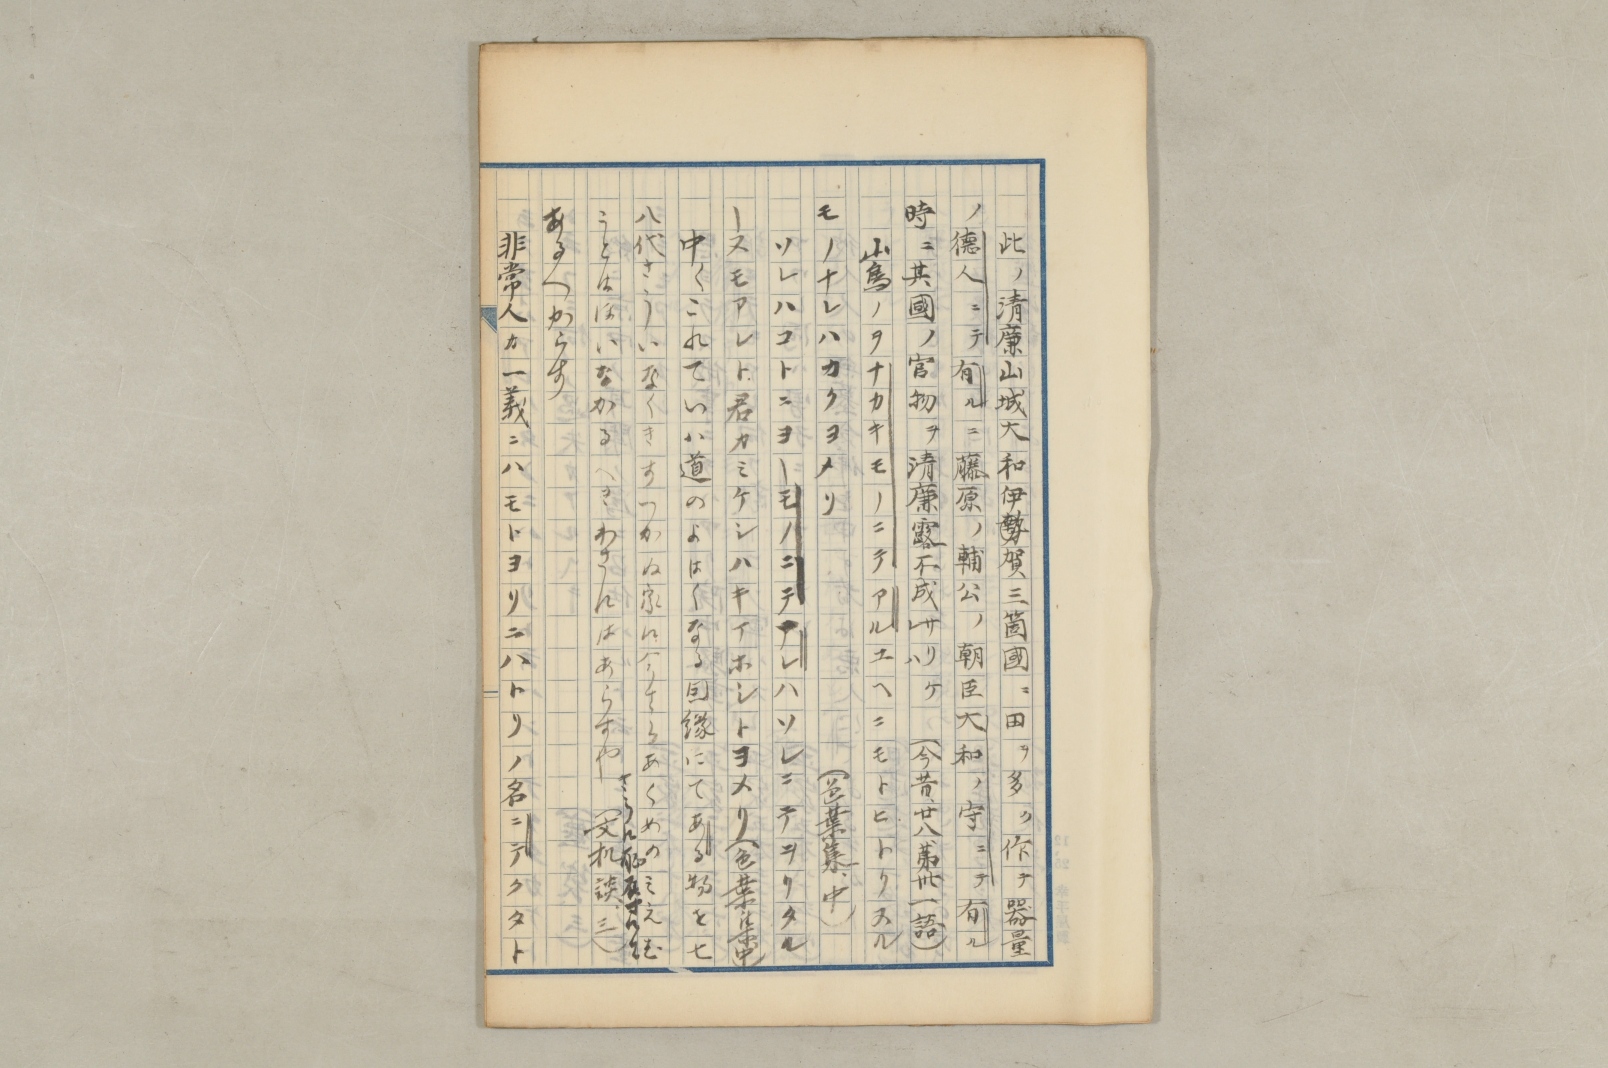 此ノ清廉山城大和伊勢賀三箇國ニ田ヲ多ク作テ器量
ノ德人ニテ有ルニ藤原ノ輔公ノ朝臣大和ノ守ニテ有ル
時ニ其國ノ官物ヲ清廉露不成サリケレハ（今昔、廿八第卅一語）
山鳥ノヲナカキモノニテアルユヘニモトヒトリヌル
モノナレハカクヨメリ（色葉集、中）
ソレハコトニヨーモノニテナレハソレニテヲリタル
ースモアレト君カミケシハキイホシトヨメリ（色葉集中）
中〱これていハ道のよはくなる因縁にてある物を七
八代さうゐなくきすつかぬ家に今さらあくめのみえむ
うとはほいなかるへきわさにはあらすや（文机談、三）
あるへからす
非常人カ一義ニハモトヨリニハトリノ名ニテクタト